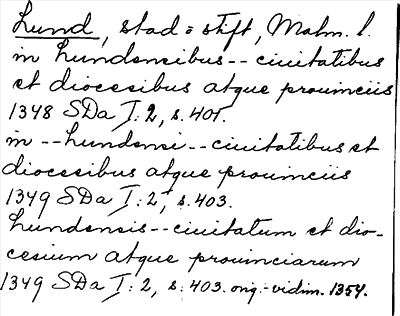 Lund, stad = stift, Malm. l.
in Lundensibus -- ciuitatibus
et diocesibus atque prouinciis
1348 SDa I: 2, s. 401.
in -- Lundensi -- ciuitatibus et
diocesibus atque prouinciis
1349 SDa I: 2, s. 403.
Lundensis -- ciuitatum et dio-
cesium atque prouinciarum
1349 SDa I: 2, s. 403. orig.-vidim. 1354.